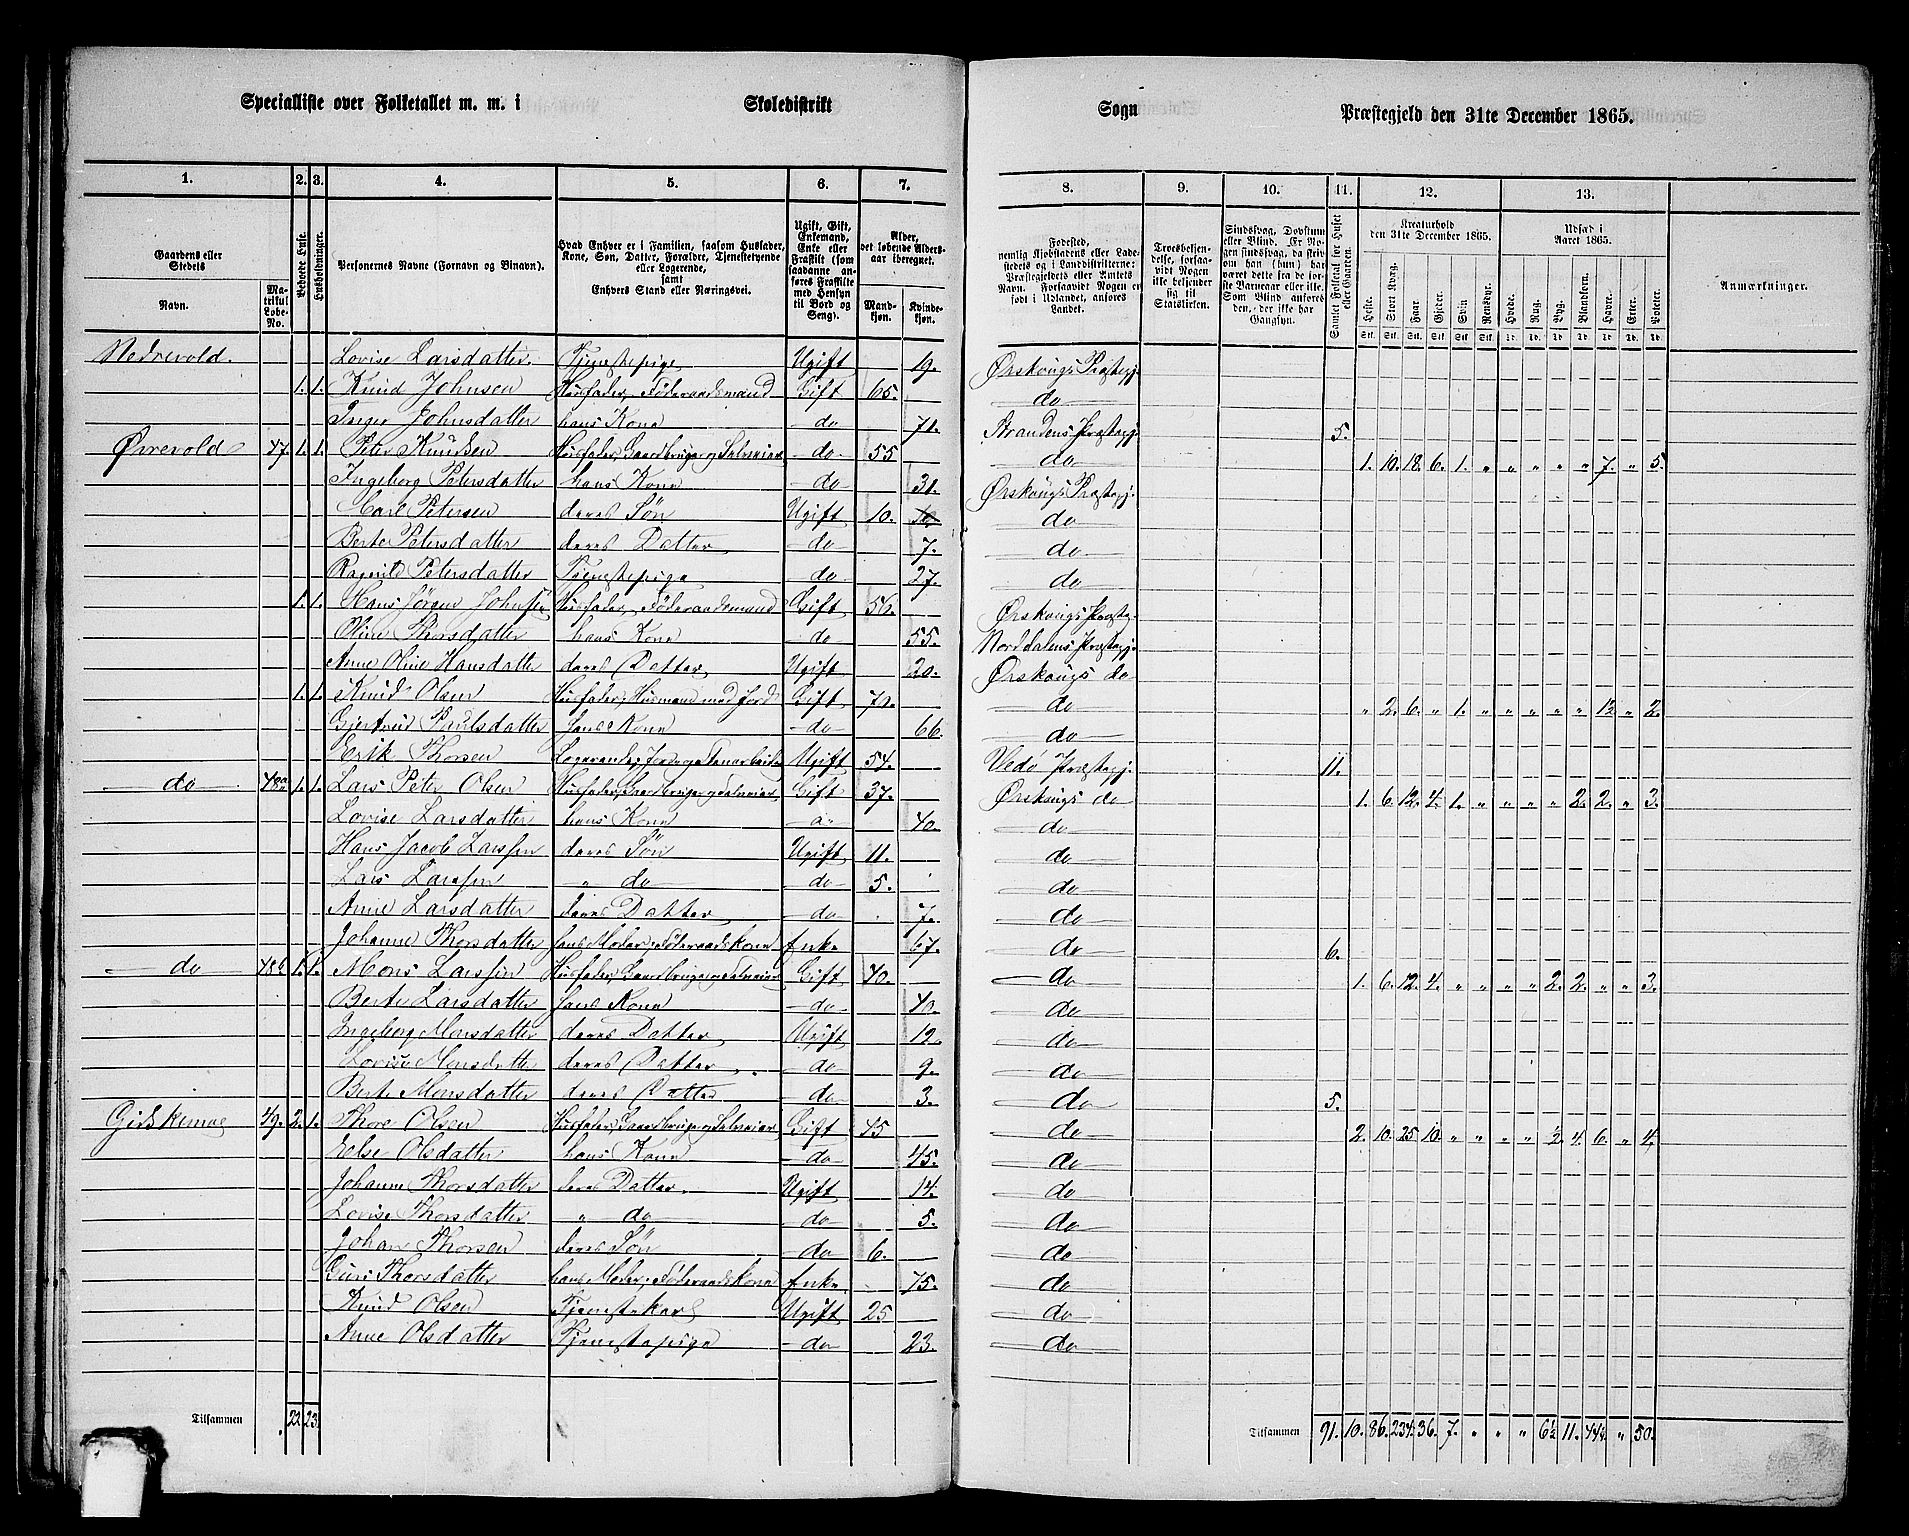 Specialliste over Folketallet m. m. i Skoledistrikt Sogn Præstegjeld den 31te December 1865.
1. 2. 3. 4. 5. 6. 7. 8. 9. 10. 11. 12. 13.
Gaardens eller Stedets
Navn.
Matrikul Løbe-No.
Beboede Huse.
Husholdninger.
Personernes Navne (Fornavn og Binavn).
Hvad Enhver er i Familien, saasom Husfader, Kone, Søn, Datter, Forældre, Tjenestetyende eller Logerende, samt Enhvers Stand eller Næringsvei.
Ugift, Gift, Enkemand, Enke eller Fraskilt (som saadanne anføres Fraskilte med Hensyn til Bord og Seng).
Alder, det løbende Alders-aar iberegnet.
Mandkjøn. Kvindekjøn.
Fødested, nemlig Kjøbstadens eller Ladestedets og i Landdistrikterne: Præstegjeldets eller Amtets Navn. Forsaavidt Nogen er født i Udlandet, anføres Landet.
Troesbekjendelse, forsaavidt Nogen ikke bekjender sig til Statskirken.
Sindssvag, Døvstum eller Blind. Er Nogen Sindssvag, da skrives om han (hun) har været dette fra første Barneaar eller ikke. Som Blind anføres den, der ikke har Gangsyn.
Samlet Folketal for Huset eller Gaarden.
Kreaturhold den 31te December 1865.
Heste. Stort Kvæg. Faar. Gjeter. Svin. Rensdyr.
Udsæd i Aaret 1865.
Hvede. Rug. Byg. Blandkorn. Havre. Erter. Poteter.
Anmærkninger.
Nedrevold. Lovise Larsdatter Tjenestepige Ugift 19. Ørskougs Præstegj.
1. 1. Knud Johnsen Husfader, Føderaadsmand Gift 65. do
Inger Johnsdatter hans Kone do 71. Strandens Præstegj. 5.
Øvrevold 47. 1. 1. Peter Knudsen Husfader, Gaardbruger og Selveier do 55 do 1. 10. 18. 6. 1. " " " " " 7. " 5.
Ingeborg Petersdatter hans Kone do 31. Ørskougs Præstegj.
Carl Petersen deres Søn Ugift 10. do
Berte Petersdatter deres Datter do 7. do
Ragnild Petersdatter Tjenestepige do 27. do
1. 1. Hans Jørgen Johnsen Husfader, Føderaadsmand Gift 56. Ørskougs Præsteg.
Oline Thorsdatter hans Kone do 55. Norddalens Præstegj.
Anne Oline Hansdatter deres Datter Ugift 20. Ørskougs do
1. 1. Knud Olsen Husfader, Husmand med Jord Gift 70. do " 2. 6. " 1. " " " " " 1½ " 2.
Gjertrud Paulsdatter hans Kone do 66. do
Erik Thorsen Logerende, Ugift 54. Vedø Præstegj. 11.
do 48a 1. 1. Lars Peter Olsen Husfader, Gaardbruger og Selveier Gift 37. Ørskougs do 1. 6. 12. 4. 1. " " " " 2. 2. " 3.
Lovise Larsdatter hans Kone do 40. do
Hans Jacob Larssen deres Søn Ugift 11. do
Lars Larssen " do do 5. do
Anne Larsdatter deres Datter do 7. do
Johanne Thorsdatter hans Moder, Føderaadskone Enke 67. do 6.
do 48b 1. 1. Mons Larssen Husfader, Gaardbruger og Selveier Gift 40. do 1. 6. 12. 4. " " " " 2. 2. " " 3.
Berte Larsdatter hans Kone do 40. do
Ingeborg Monsdatter deres Datter Ugift 12. do
Lovise Monsdatter deres Datter do 9. do
Berte Monsdatter deres Datter do 3. do 5.
Gidskemoe 49. 2. 1. Thore Olsen Husfader, Gaardbruger og Selveier Gift 45 do 2. 10. 25 10. " " " " ½ 4. 6. " 4.
Else Olsdatter hans Kone do 45. do
Johanne Thorsdatter deres Datter Ugift 14. do
Lovise Thorsdatter " do do 5. do
Johan Thorsen deres Søn do 6. do
Guri Thorsdatter hans Moder, Føderaadskone Enke 75. do
Knud Olsen Tjenestekarl Ugift 25 do
Anne Olsdatter Tjenestepige do 23. do
Tilsammen 22. 23. Tilsammen 91. 10. 86. 234. 36. 7. " " " 6½ 11. 44½ " 50.